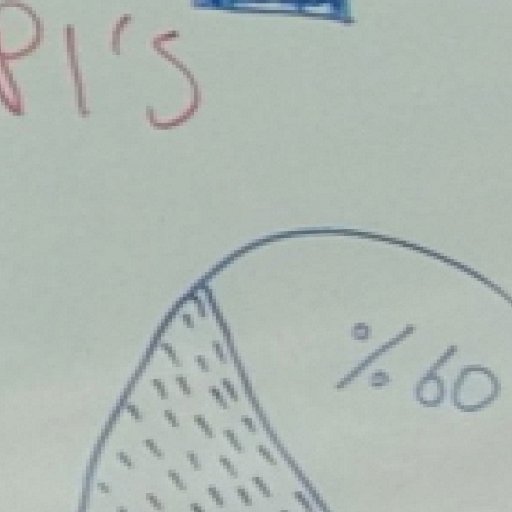 PI's
%60